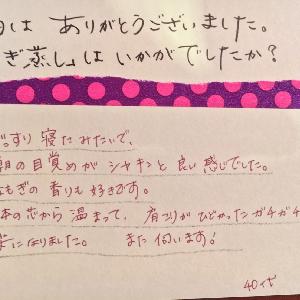 日は ありがとうございました。
ぎ蒸し」は いかがでしたか?
っすり 寝たみたいで、
朝の目覚めが シャキンと 良い 感じでした。
もぎの 香りも 好きです。
体の芯から 温まって、肩コリが ひどかった ガチガチ
楽になりました。 また 伺います!
40代